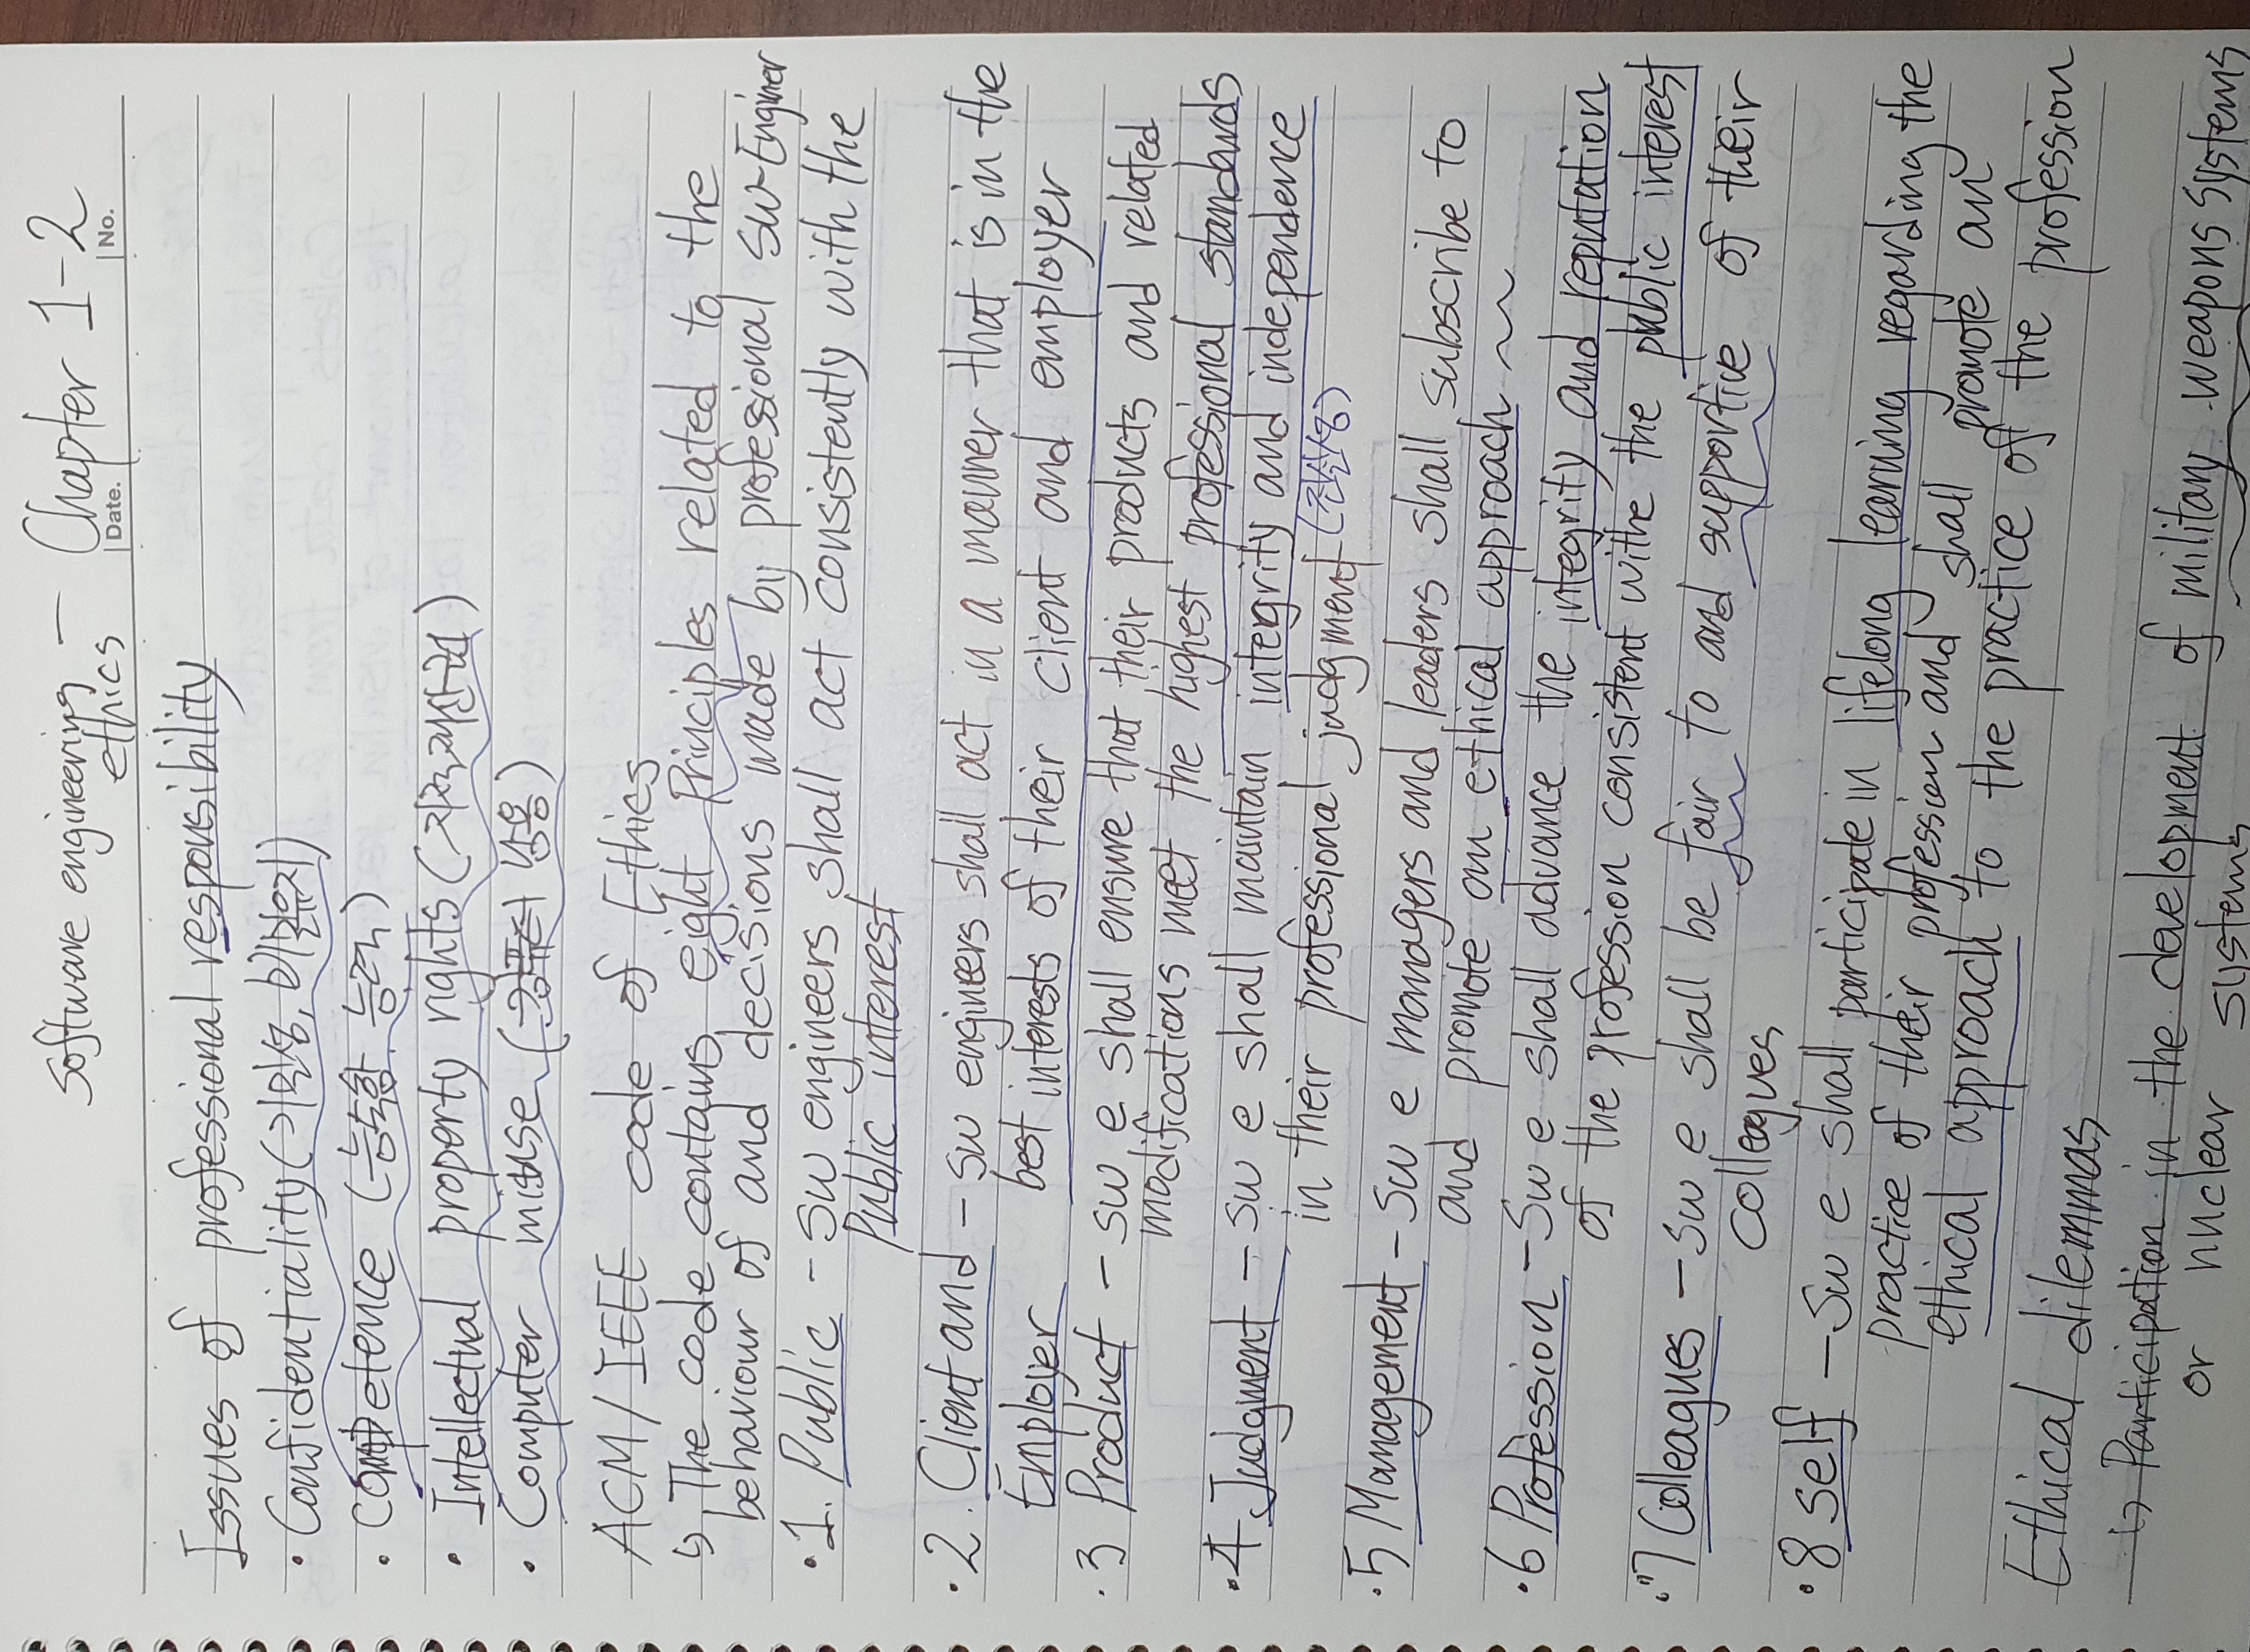 Software engineering — Chapter 1-2
ethics
Date. No.
Issues of professional responsibility
· Confidentiality (기밀성, 비밀유지)
· Competence (능숙함, 능력)
· Intellectual property rights (지적재산권)
· Computer misuse (컴퓨터 남용)
ACM/IEEE code of Ethics
↳ The code contains eight Principles related to the
behaviour of and decisions made by professional SW-Enginer
·1. Public - SW engineers shall act consistently with the
Public interest
·2. Client and - SW engineers shall act in a manner that is in the
Employer best interests of their client and employer
·3 Product - SW e shall ensure that their products and related
modifications meet the highest professional standards
·4 Judgment - SW e shall maintain integrity and independence
in their professional judgment (진실성)
·5 Management - SW e managers and leaders shall subscribe to
and promote an ethical approach ~~
·6 Profession - SW e shall advance the integrity and reputation
of the profession consistent withe the public interest
·7 Colleagues - SW e shall be fair to and supportive of their
colleagues
·8 self - SW e shall participate in lifelong learning regarding the
practice of their profession and shall promote an
ethical approach to the practice of the profession
Ethical dilemmas
↳ Participation in the development of military weapons systems
or nuclear systems